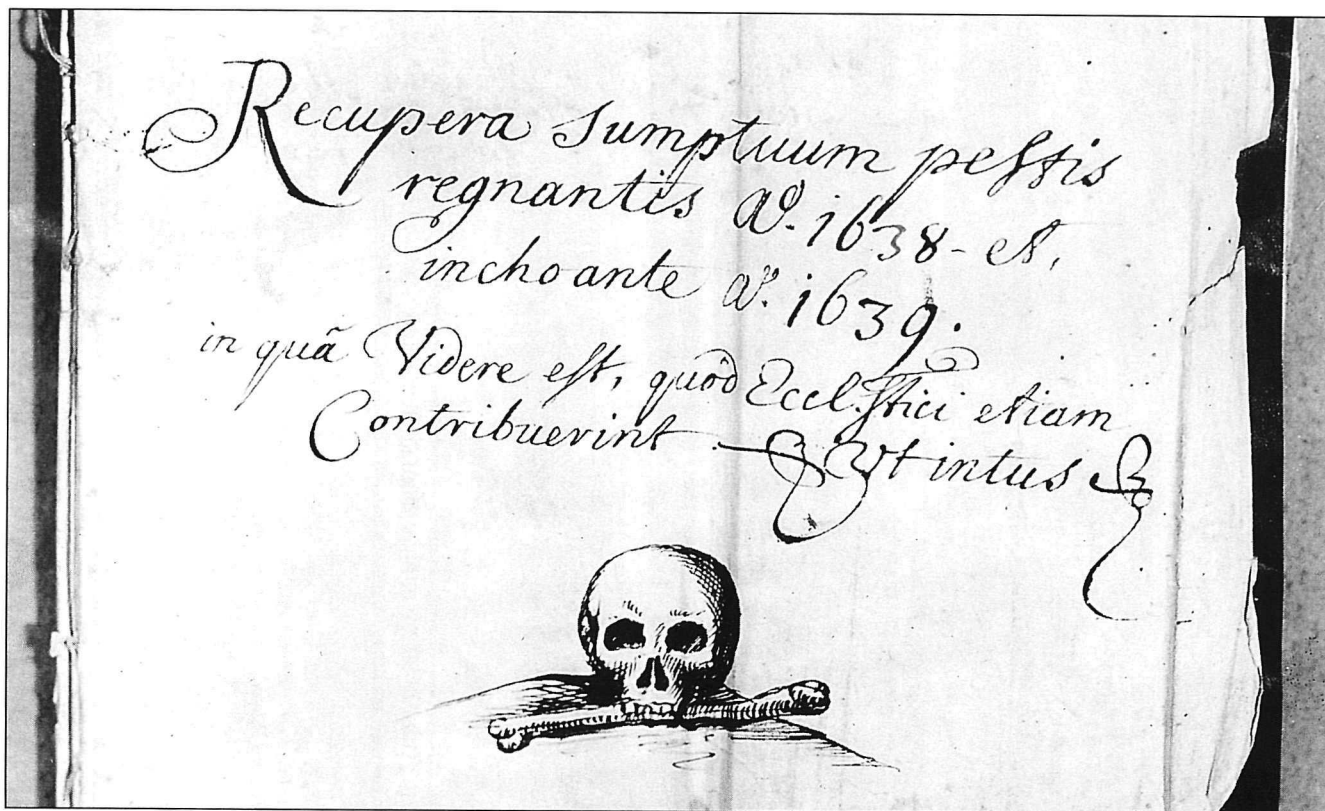 Recupera sumptuum pestis
regnantis Aº. 1638 - et,
inchoante Aº. 1639.
in quã Videre est, quôd Eccl.stici etiam
Contribuerint Vt intus